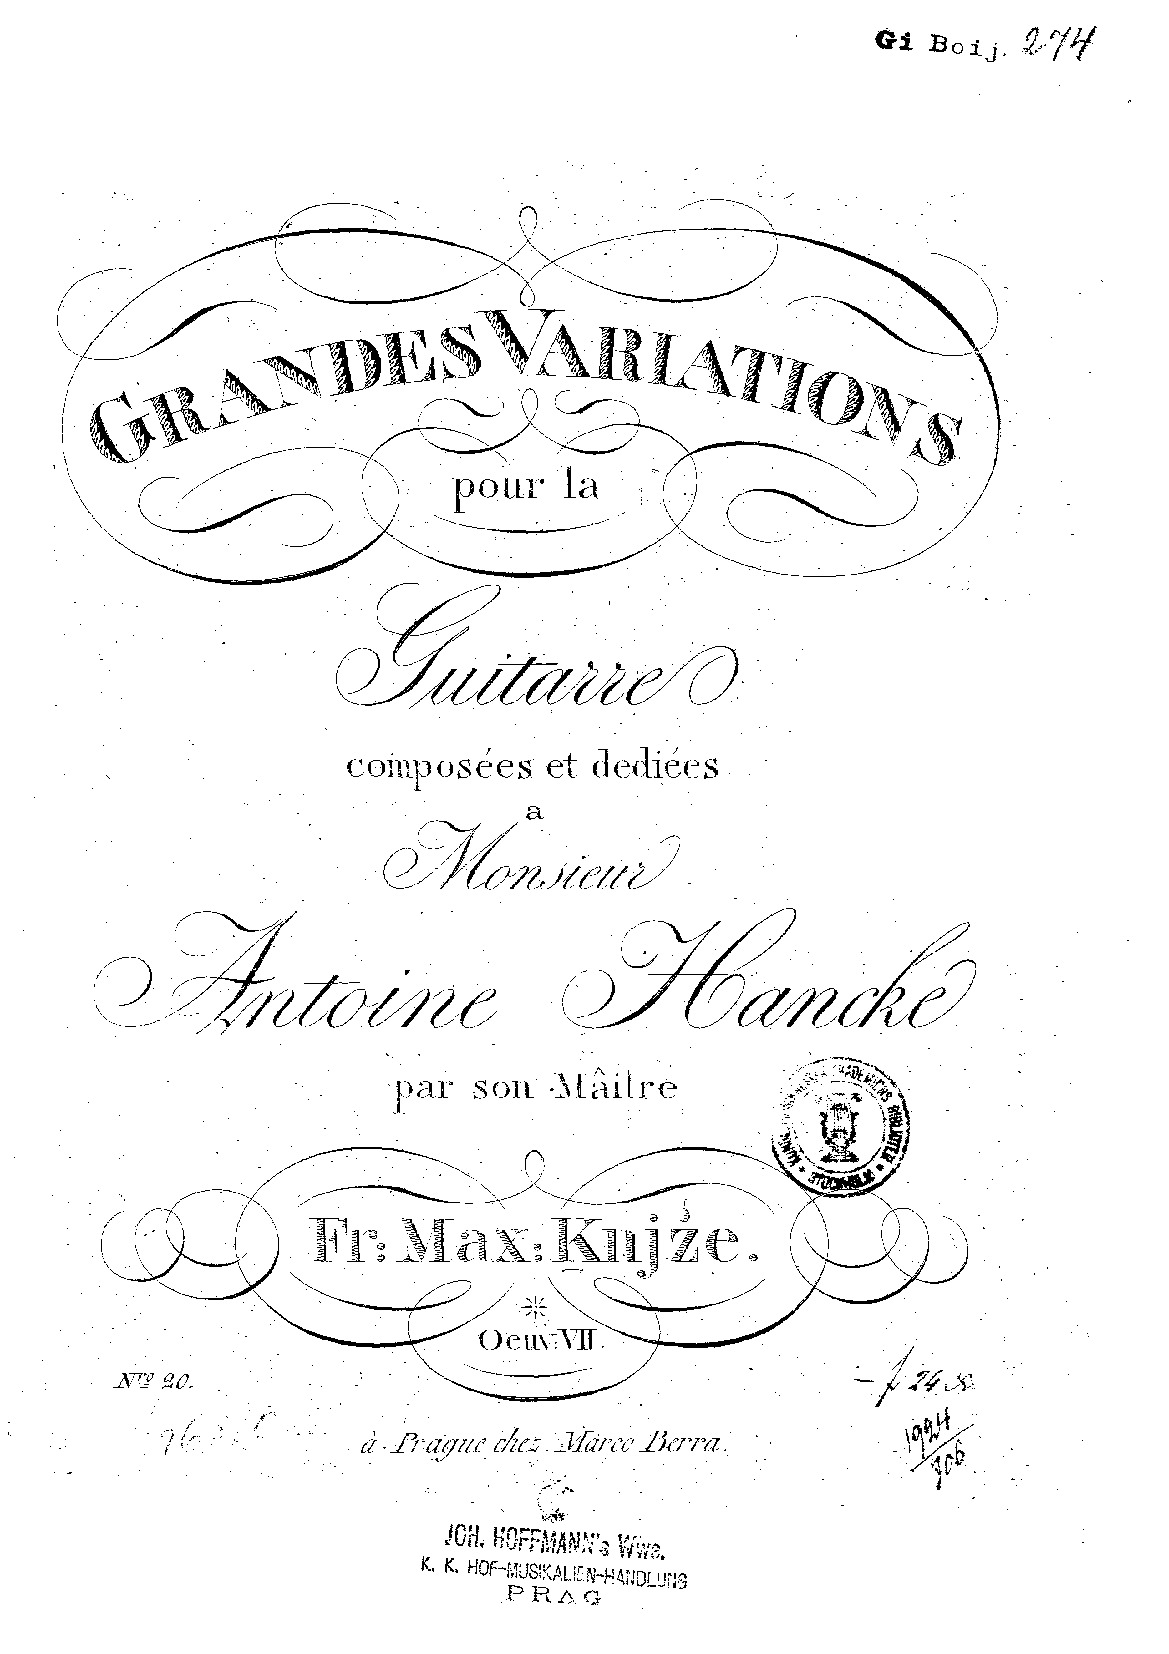 Gi Boij. 274
GRANDES VARIATIONS
pour la
Guitarre
composées et dediées
a
Monsieur
Antoine Hancke
par son Mâitre
Fr: Max: Knjže.
Oeuv: VII.
Nro 20.
f 24 x.
1924/306
à Prague chez Marco Berra.
JOH. HOFFMANN's Wwe.
K. K. HOF-MUSIKALIEN-HANDLUNG
PRAG